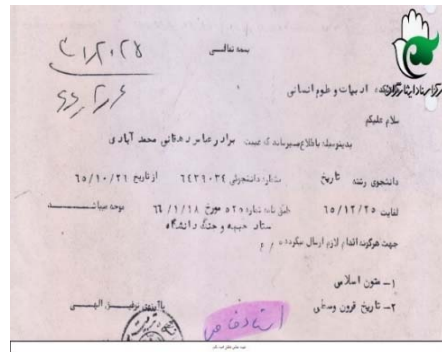 بسمه تعالی
دانشکده ادبیات و علوم انسانی
سلام علیکم
بدینوسیله باطلاع میرساند که غیبت برادر عباس دهقانی محمد آبادی
دانشجوی رشته تاریخ بشماره دانشجوئی ۶۴۳۶۰۳۴ از تاریخ ۶۵/۱۰/۲۶
لغایت ۶۵/۱۲/۲۵ طبق نامه شماره ۵۲۵ مورخ ۶۶/۱/۱۸ موجه میباشد
ستاد جبهه و جنگ دانشگاه
جهت هرگونه اقدام لازم ارسال میگردد
۱- متون اسلامی
۲- تاریخ قرون وسطی
با آرزوی توفیق الهی